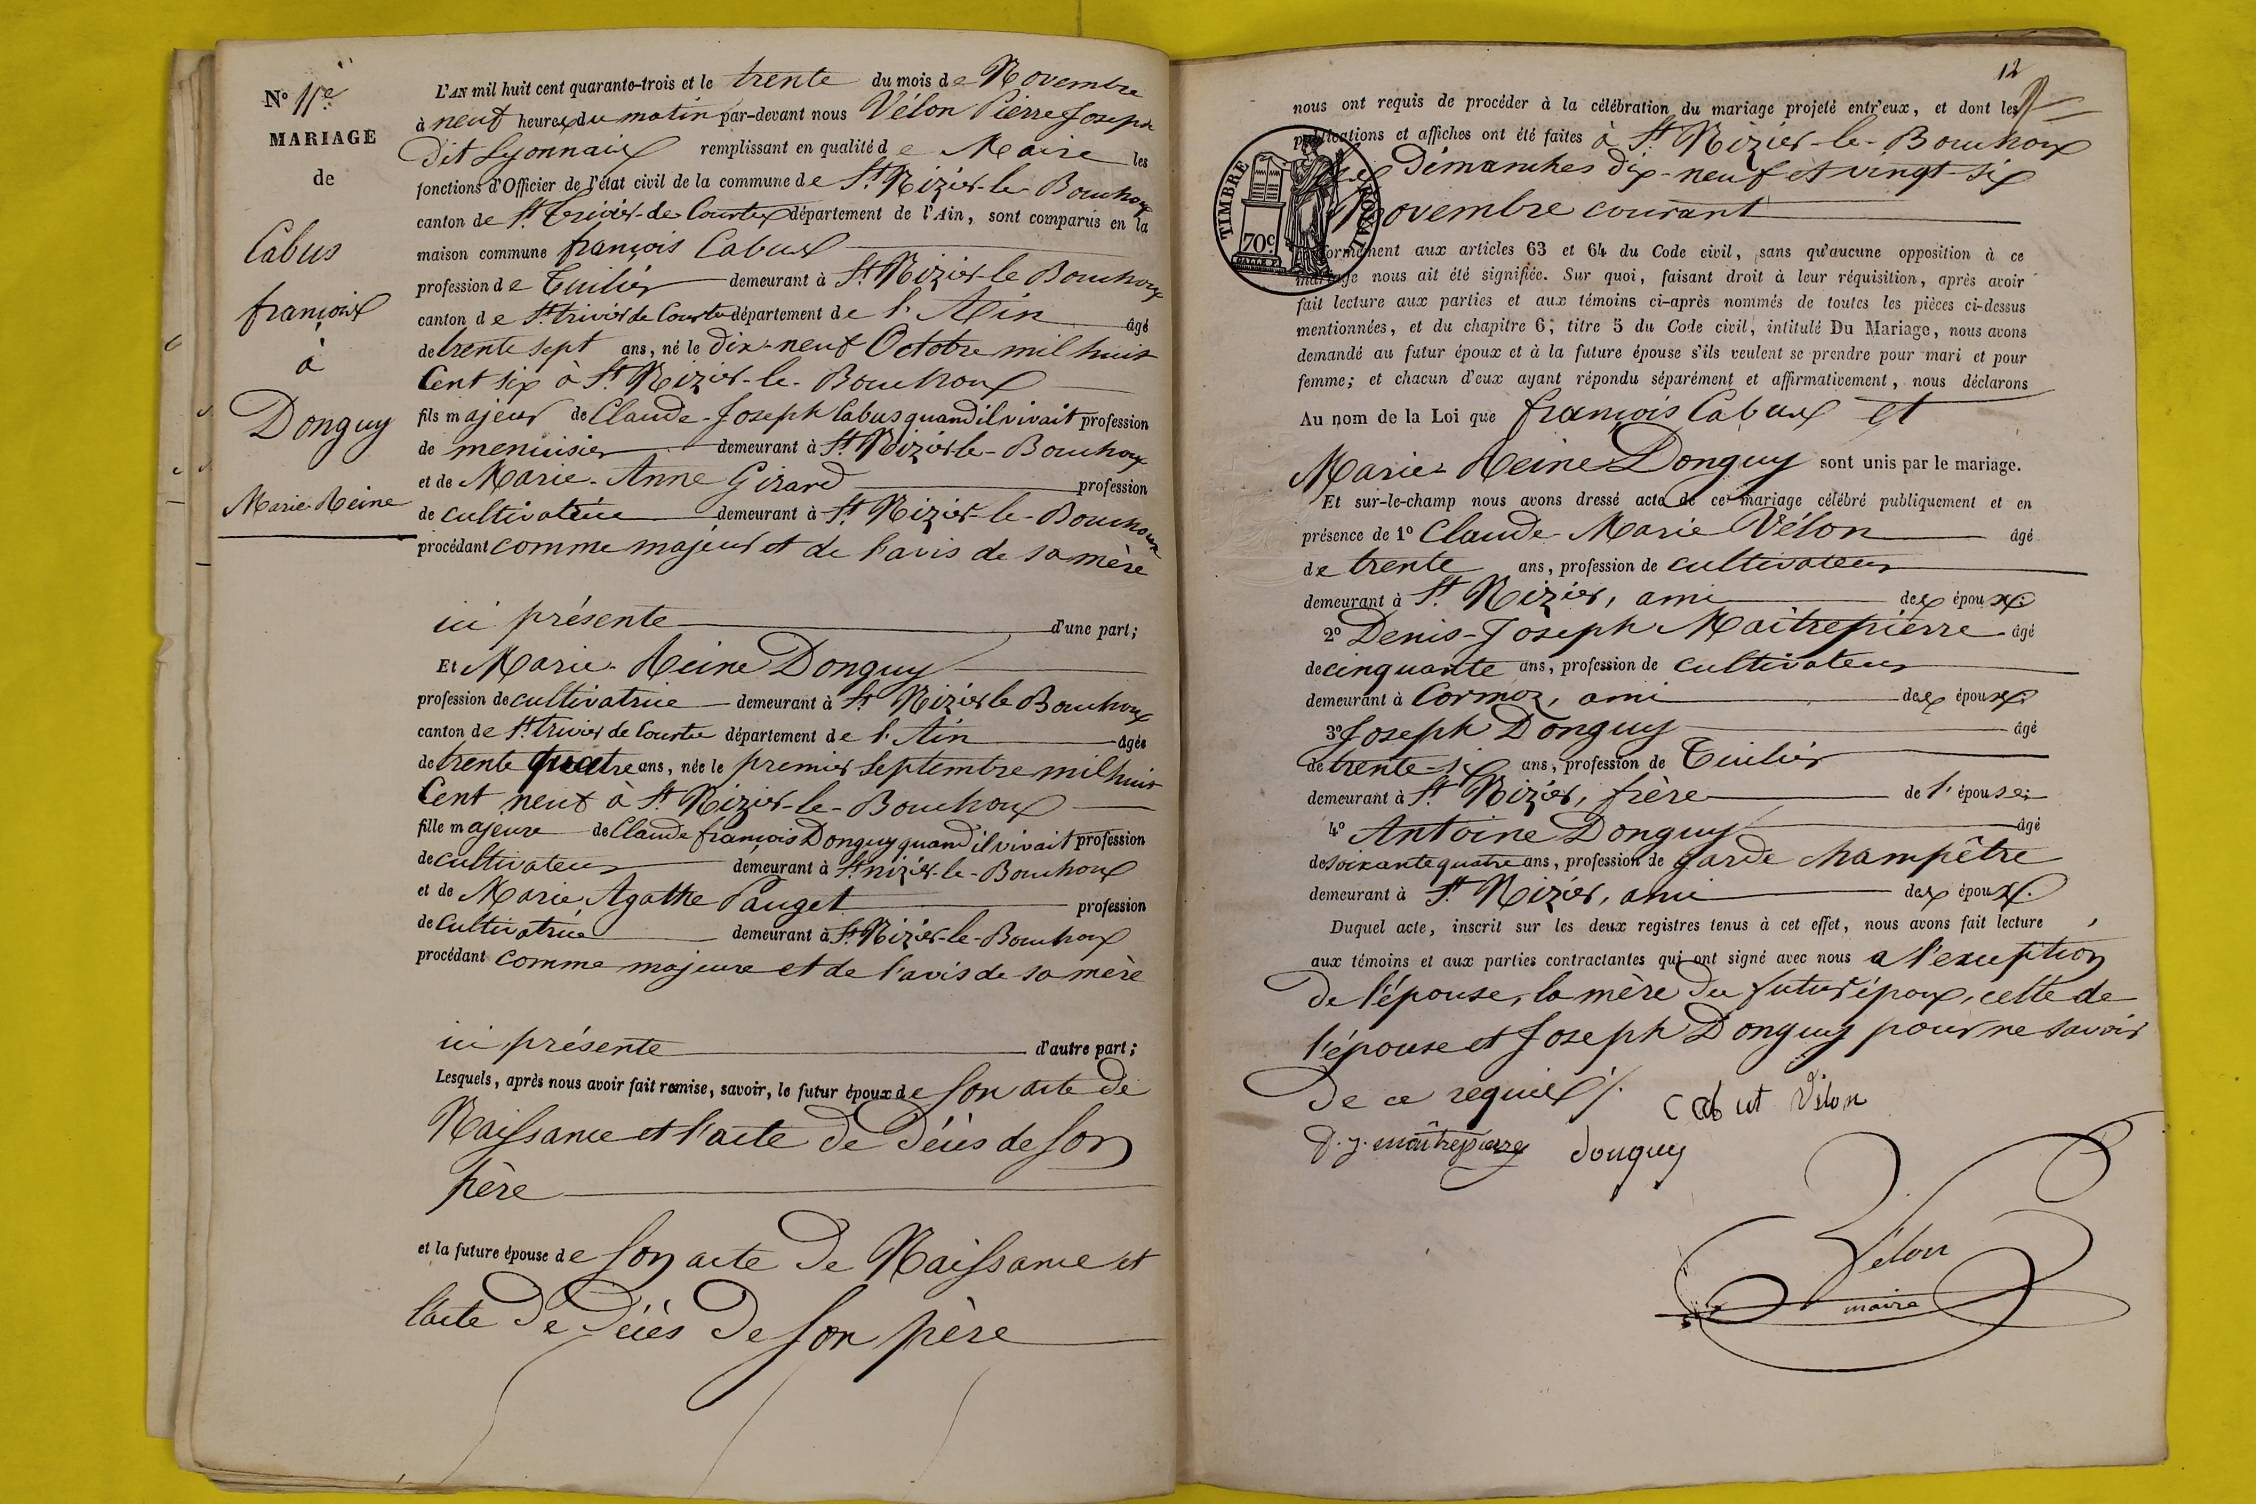 N.º 11.e
MARIAGE
de
Cabus
françois
à
Donguy
Marie Reine
L'AN mil huit cent quarante-trois et le trente du mois de Novembre
à neuf heures du matin par-devant nous Vélon Pierre Joseph
dit Lyonnais remplissant en qualité de Maire les
fonctions d'Officier de l'état civil de la commune de St. Nizier-le-Bouchoux
canton de St. Trivier-de-Courtes département de l'Ain, sont comparus en la
maison commune françois Cabus
profession de Tuilier demeurant à St. Nizier-le Bouchoux
canton de St. trivier de Courtes département de l'Ain âgé
de trente sept ans, né le dix-neuf Octobre mil huit
Cent six à St. Nizier-le-Bouchoux
fils majeur de Claude-Joseph Cabus quand il vivait profession
de menuisier demeurant à St. Nizier-le-Bouchoux
et de Marie-Anne Girard profession
de cultivatrice demeurant à St. Nizier-le-Bouchoux
procédant comme majeur et de l'avis de sa mère
ici présente d'une part;
Et Marie-Reine Donguy
profession de cultivatrice demeurant à St. Nizier le Bouchoux
canton de St. trivier de Courtes département de l'Ain âgée
de trente quatre ans, née le premier septembre mil huit
Cent neuf à St. Nizier-le-Bouchoux
fille majeure de Claude françois Donguy quand il vivait profession
de cultivateur demeurant à St. nizier-le-Bouchoux
et de Marie Agathe Pauget profession
de cultivatrice demeurant à St. Nizier-le-Bouchoux
procédant comme majeure et de l'avis de sa mère
ici présente d'autre part;
Lesquels, après nous avoir fait remise, savoir, le futur époux de son acte de
Naissance et l'acte de décès de son
père
et la future épouse de son acte de Naissance et
l'acte de décès de son père
12
nous ont requis de procéder à la célébration du mariage projeté entr'eux, et dont les
publications et affiches ont été faites à St. Nizier-le-Bouchoux
les dimanches dix-neuf et vingt-six
Novembre courant
TIMBRE ROYAL
70c
conformément aux articles 63 et 64 du Code civil, sans qu'aucune opposition à ce
mariage nous ait été signifiée. Sur quoi, faisant droit à leur réquisition, après avoir
fait lecture aux parties et aux témoins ci-après nommés de toutes les pièces ci-dessus
mentionnées, et du chapitre 6, titre 5 du Code civil, intitulé Du Mariage, nous avons
demandé au futur époux et à la future épouse s'ils veulent se prendre pour mari et pour
femme; et chacun d'eux ayant répondu séparément et affirmativement, nous déclarons
Au nom de la Loi que françois Cabus et
Marie-Reine Donguy sont unis par le mariage.
Et sur-le-champ nous avons dressé acte de ce mariage célébré publiquement et en
présence de 1º Claude-Marie Vélon âgé
de trente ans, profession de cultivateur
demeurant à St. Nizier, ami des époux;
2º Denis-Joseph Maitrepierre âgé
de cinquante ans, profession de cultivateur
demeurant à Cormoz, ami des époux;
3º Joseph Donguy âgé
de trente-six ans, profession de Tuilier
demeurant à St. Nizier, frère de l'épouse;
4º Antoine Donguy âgé
de soixante quatre ans, profession de garde champêtre
demeurant à St. Nizier, ami des époux.
Duquel acte, inscrit sur les deux registres tenus à cet effet, nous avons fait lecture
aux témoins et aux parties contractantes qui ont signé avec nous à l'exception
de l'épouse, la mère du futur époux, celle de
l'épouse et Joseph Donguy pour ne savoir
de ce requis /.
Cabut Vélon
d. j. maitrepierre donguy
Vélon
maire